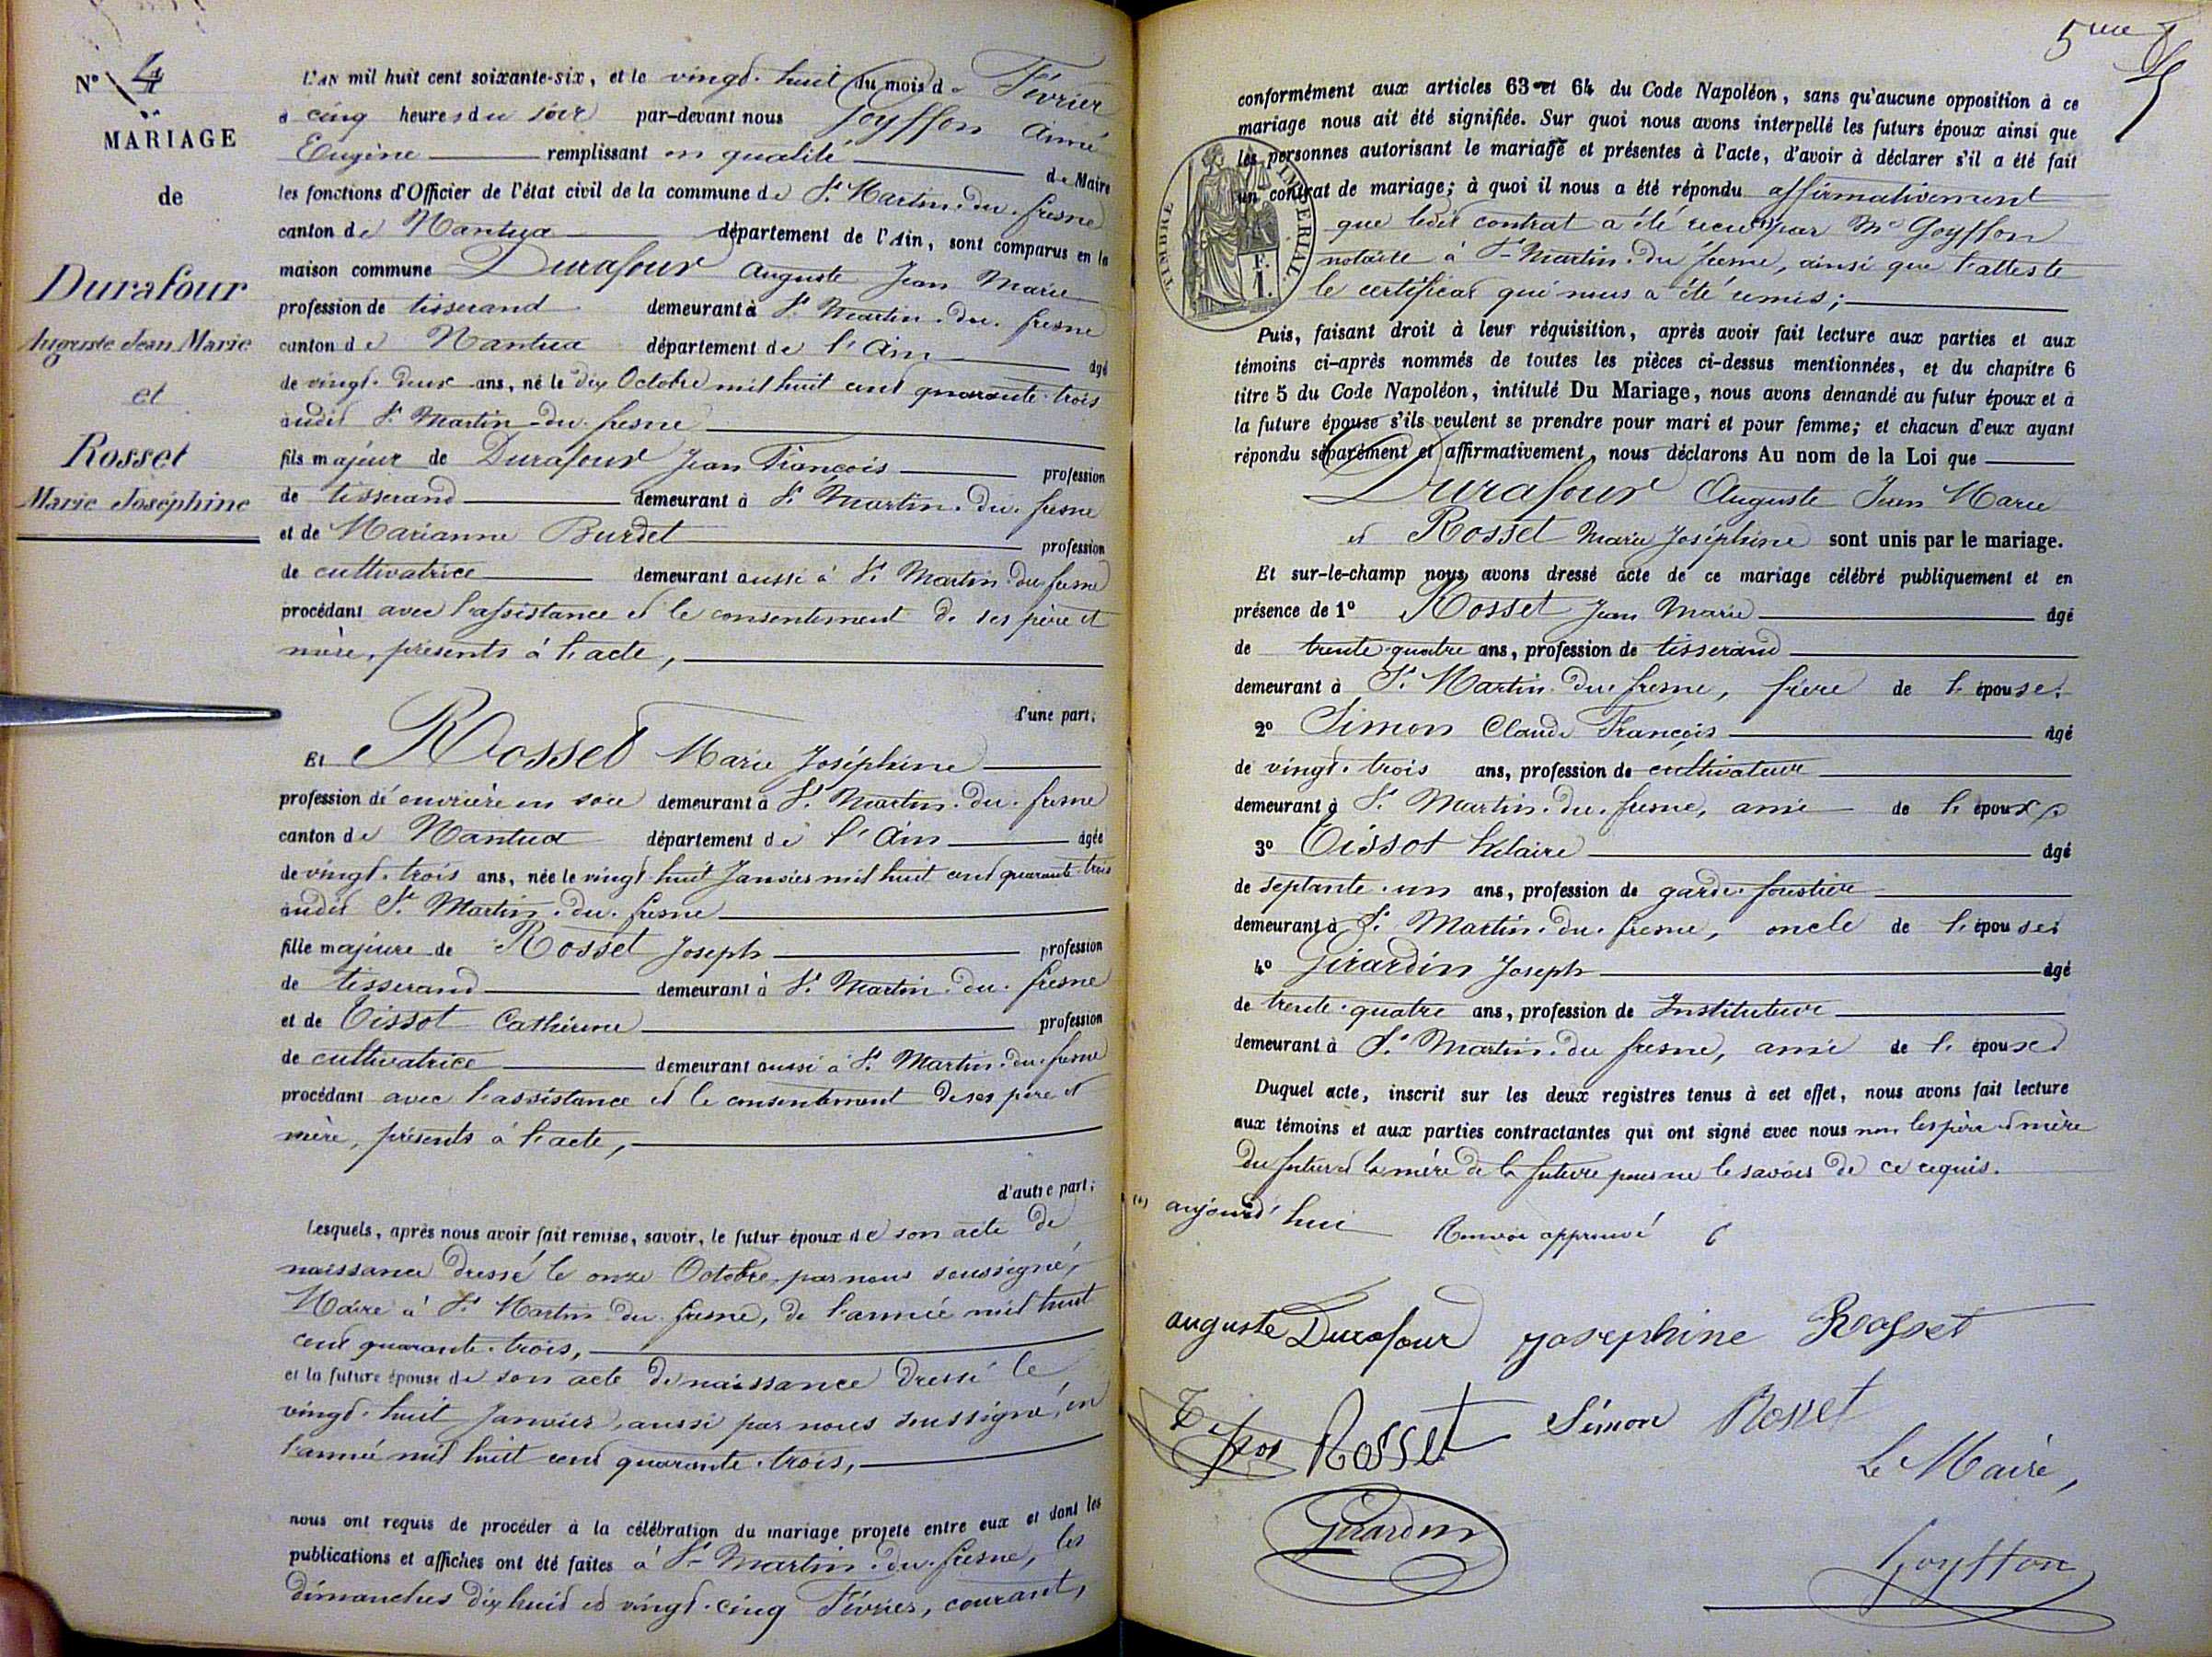 N° 4
MARIAGE
de
Durafour
Auguste Jean Marie
et
Rosset
Marie Joséphine
L'AN mil huit cent soixante-six, et le vingt-huit du mois de Février
à cinq heures du soir par-devant nous Goyffon Aimé
Eugène remplissant en qualité de Maire
les fonctions d'Officier de l'état civil de la commune de St Martin-du-fresne
canton de Nantua département de l'Ain, sont comparus en la
maison commune Durafour Auguste Jean Marie
profession de tisserand demeurant à St Martin-du-fresne
canton de Nantua département de l'Ain âgé
de vingt-deux ans, né le dix Octobre mil huit cent quarante-trois
audit St Martin-du-fresne
fils majeur de Durafour Jean François profession
de tisserand demeurant à St Martin-du-fresne
et de Marianne Burdet profession
de cultivatrice demeurant aussi à St Martin-du-fresne
procédant avec l'assistance et le consentement de ses père et
mère, présents à l'acte,
d'une part;
Et Rosset Marie Joséphine
profession d'ouvrière en soie demeurant à St Martin-du-fresne
canton de Nantua département de l'Ain âgée
de vingt-trois ans, née le vingt-huit Janvier mil huit cent quarante-trois
audit St Martin-du-fresne
fille majeure de Rosset Joseph profession
de tisserand demeurant à St Martin-du-fresne
et de Tissot Cathérine profession
de cultivatrice demeurant aussi à St Martin-du-fresne
procédant avec l'assistance et le consentement de ses père et
mère, présents à l'acte,
d'autre part;
Lesquels, après nous avoir fait remise, savoir, le futur époux de son acte de
naissance dressé le onze Octobre, par nous soussigné,
Maire à St Martin-du-fresne, de l'année mil huit
cent quarante-trois,
et la future épouse de son acte de naissance dressé le
vingt-huit Janvier, aussi par nous soussigné, en
l'année mil huit cent quarante-trois,
nous ont requis de procéder à la célébration du mariage projeté entre eux et dont les
publications et affiches ont été faites à St Martin-du-fresne, les
dimanches dix huit et vingt-cinq Février, courant,
5me
conformément aux articles 63 et 64 du Code Napoléon, sans qu'aucune opposition à ce
mariage nous ait été signifiée. Sur quoi nous avons interpellé les futurs époux ainsi que
les personnes autorisant le mariage et présentes à l'acte, d'avoir à déclarer s'il a été fait
un contrat de mariage; à quoi il nous a été répondu affirmativement
que ledit contrat a été reçu par Me Goyffon
notaire à St Martin-du-fresne, ainsi que l'atteste
le certificat qui nous a été remis;
TIMBRE IMPERIAL
1 F.
Puis, faisant droit à leur réquisition, après avoir fait lecture aux parties et aux
témoins ci-après nommés de toutes les pièces ci-dessus mentionnées, et du chapitre 6
titre 5 du Code Napoléon, intitulé Du Mariage, nous avons demandé au futur époux et à
la future épouse s'ils veulent se prendre pour mari et pour femme; et chacun d'eux ayant
répondu séparément et affirmativement, nous déclarons Au nom de la Loi que
Durafour Auguste Jean Marie
et Rosset Marie Joséphine sont unis par le mariage.
Et sur-le-champ nous avons dressé acte de ce mariage célébré publiquement et en
présence de 1° Rosset Jean Marie âgé
de trente-quatre ans, profession de tisserand
demeurant à St Martin-du-fresne, frère de l'épouse.
2° Simon Claude François âgé
de vingt-trois ans, profession de cultivateur
demeurant à St Martin-du-fresne, ami de l'époux
3° Tissot hilaire âgé
de septante-un ans, profession de garde-forestier
demeurant à St Martin-du-fresne, oncle de l'épouse
4° Girardin Joseph âgé
de trente-quatre ans, profession de Instituteur
demeurant à St Martin-du-fresne, ami de l'époux
Duquel acte, inscrit sur les deux registres tenus à cet effet, nous avons fait lecture
aux témoins et aux parties contractantes qui ont signé avec nous non les père et mère
du futur et la mère de la future pour ne le savoir de ce requis.
(1) aujourd'hui Renvoi approuvé
auguste Durafour josephine Rosset
Rosset Simon Rosset
Le Maire,
Girardin
Goyffon